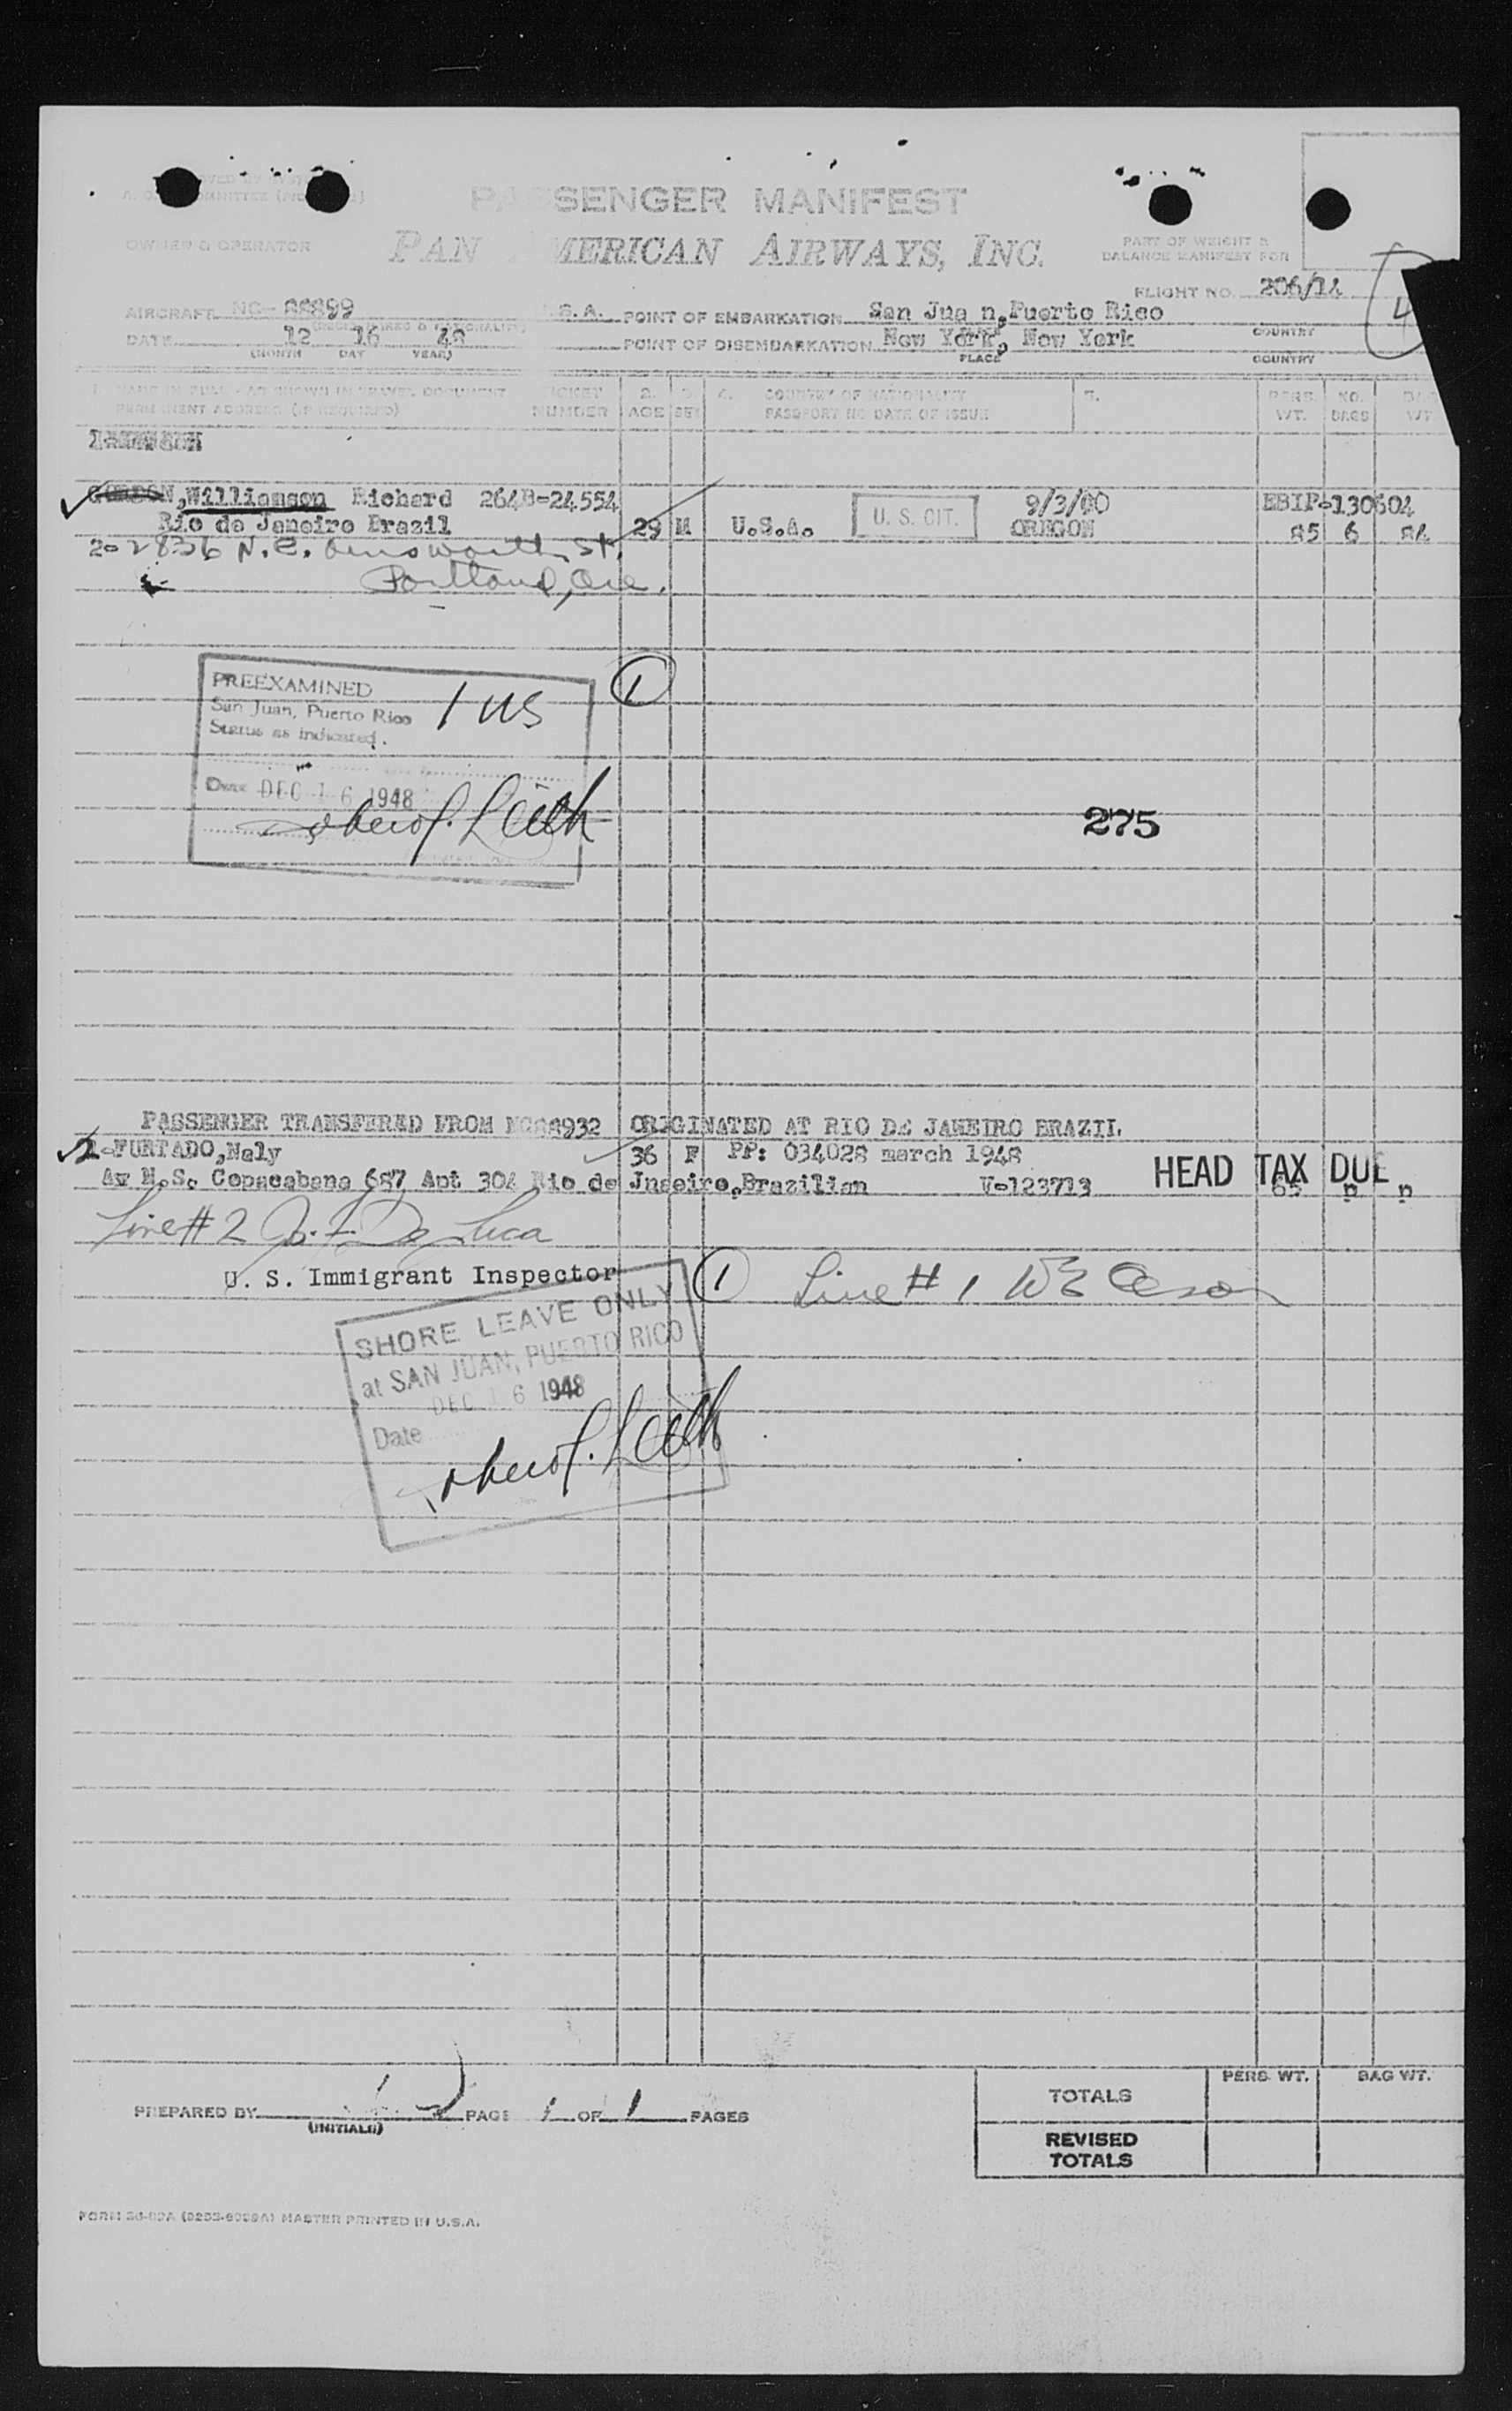 PASSENGER MANIFEST
PAN AMERICAN AIRWAYS, INC.
OWNER & OPERATOR
PART OF WEIGHT &
BALANCE MANIFEST FOR
FLIGHT NO. 206/14
AIRCRAFT NC- 88899
S. A. POINT OF EMBARKATION San Jua n, Puerto Rico
COUNTRY
DATE 12 16 48
(MONTH DAY YEAR)
POINT OF DISEMBARKATION New York, New York
PLACE
COUNTRY
NAME IN FULL - AS SHOWN IN TRAVEL DOCUMENT
PERMANENT ADDRESS (IF REQUIRED)
TICKET NUMBER
2. AGE
3. SEX
4. COUNTRY OF NATIONALITY
PASSPORT NO DATE OF ISSUE
5.
PERS. WT.
NO. BAGS
BAG WT
GORDON, Williamson Richard 264B-24554
9/3/00
EBIF-130604
Rio de Janeiro Brazil 29 M U.S.A. U. S. CIT. OREGON 85 6 84
2- 2836 N.E. Ainsworth St.
Portland, Ore.
PREEXAMINED
San Juan, Puerto Rico
Status as indicated.
1 US
1
Date DEC 16 1948
Leith
275
PASSENGER TRANSFERED FROM NC88932 ORIGINATED AT RIO DE JANEIRO BRAZIL
2-FURTADO,Nely 36 F PP: 034028 march 1948
Av N.S. Copacabana 687 Apt 304 Rio de Janeiro,Brazilian V-123713
HEAD TAX DUE
65 n n
Line # 2 De Luca
U. S. Immigrant Inspector
1
Line # 1
SHORE LEAVE ONLY
at SAN JUAN, PUERTO RICO
DEC 16 1948
Date
Leith
PREPARED BY
(INITIALS)
PAGE 1 OF 1 PAGES
PERS. WT. BAG WT.
TOTALS
REVISED
TOTALS
MASTER PRINTED IN U.S.A.